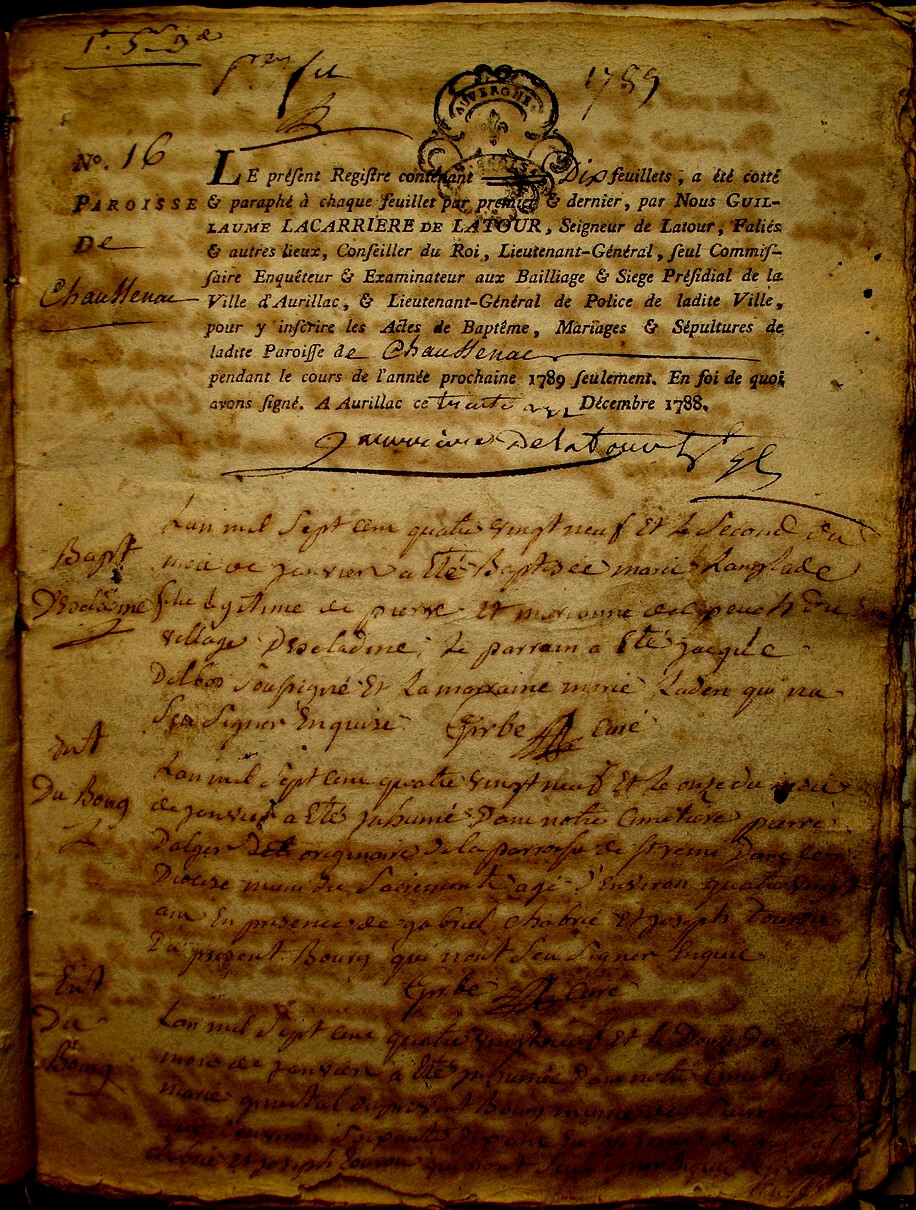 1789
AUVERGNE
N°. 16
LE préſent Regiſtre contenant Dix feuillets, a été cotté
PAROISSE & paraphé à chaque feuillet par premier & dernier, par Nous GUIL-
LAUME LACARRIERE DE LATOUR, Seigneur de Latour, Faliés
De & autres lieux, Conſeiller du Roi, Lieutenant-Général, ſeul Commiſ-
ſaire Enquêteur & Examinateur aux Bailliage & Siege Préſidial de la
Chaussenac Ville d'Aurillac, & Lieutenant-Général de Police de ladite Ville,
pour y inſcrire les Actes de Baptême, Mariages & Sépultures de
ladite Paroiſſe de Chaussenac
pendant le cours de l'année prochaine 1789 ſeulement. En foi de quoi
avons ſigné. A Aurillac ce trente Décembre 1788.
Delatour
Lan mil Sept cent quatre vingt neuf Et le Second du
Bapt
mois de janvier a Eté Baptisée marie Langlade
D'Escladine fille légitime de pierre Et marianne delpeuch du
village D'Escladine; le parrain a Eté jacque
Delbos Soussigné Et La marraine marie Laden qui na
Seu Signer Enquise Girbe Curé
Ent
Lan mil Sept cent quatre vingt neuf Et le onze du mois
Du Bourg
de janvier a Eté inhumé Dans notre Cimetière pierre
Dalger originaire de la parroisse de
Diocèse muni des Sacrements agé d'Environ quatre vingt
ans En présence de gabriel chabrié Et joseph
Du présent Bourg qui n'ont Seu Signer Enquis
Girbe Curé
Ent
Du
Lan mil Sept cent quatre vingt neuf Et le Douze du
Bourg
mois de janvier a Eté inhumée Dans notre Cimetière
marie du présent Bourg munie des Sacrements
agée d'environ Soixante Dix ans En présence de
chabrié Et joseph qui n'ont Seu Signer Enquis